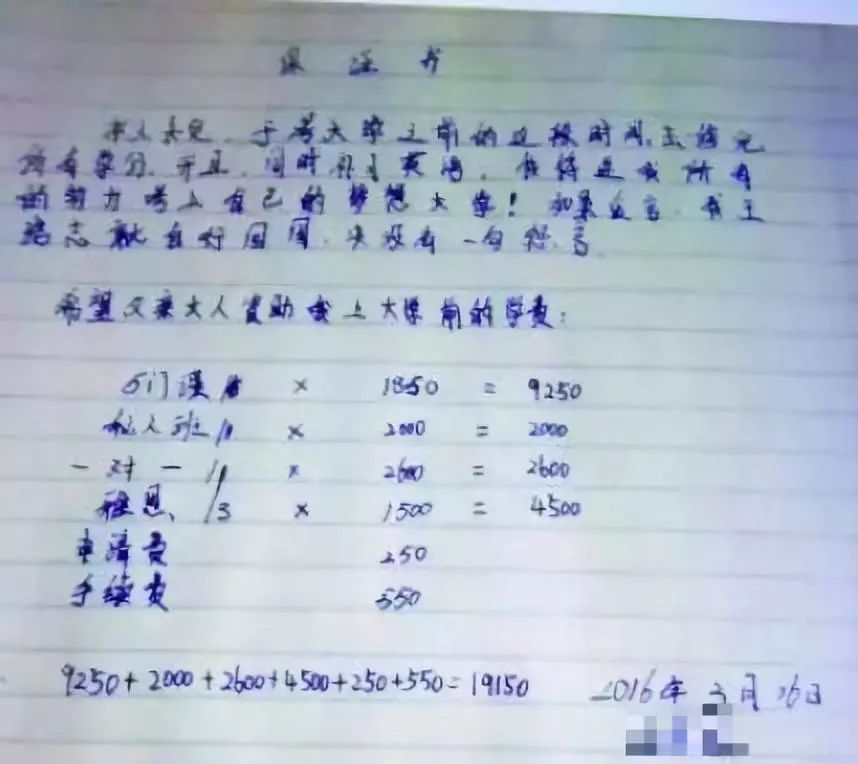 保证书
本人承兑,于考大学之前的这段时间,去修完
所有学分,并且,同时补习英语,
的努力考上自己的梦想大学!如果
志就自行回国,决没有一句怨言。
希望父亲大人资助我上大学前的学费:
5门课 × 1850 = 9250
私人班/1 × 2000 = 2000
一对一/1 × 2600 = 2600
雅思/3 × 1500 = 4500
申请费 250
手续费 550
9250+2000+2600+4500+250+550=19150 2016年3月16日